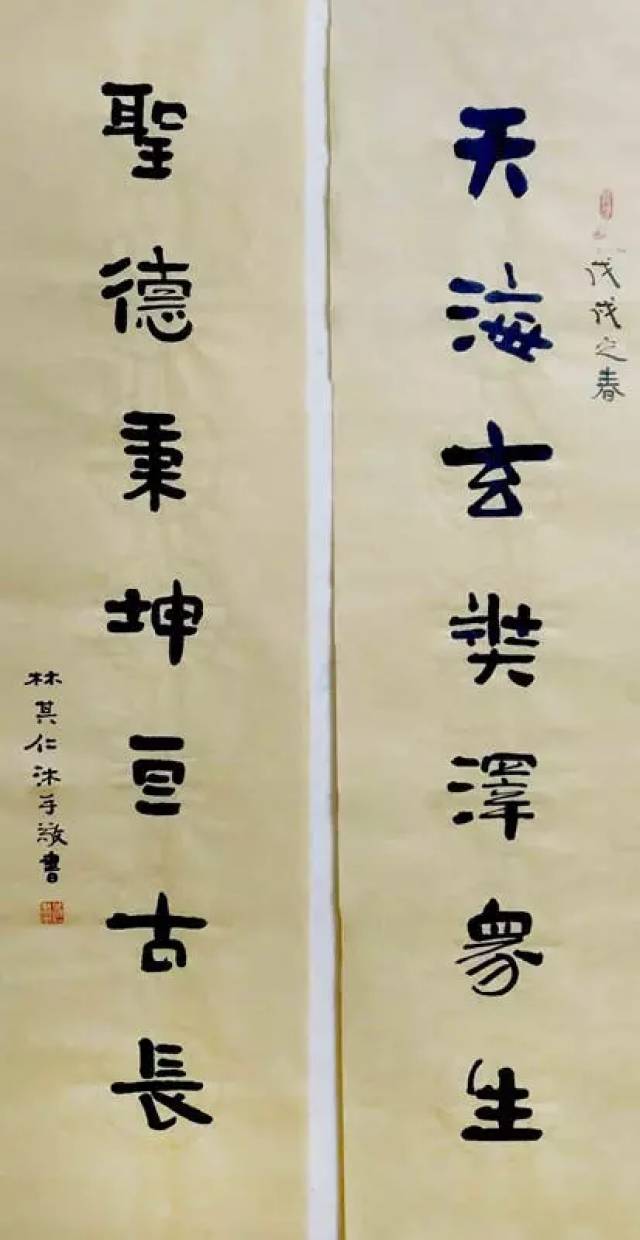 戊戌之春
天海玄奘澤眾生
聖德秉坤亘古長
林其仁沐手敬書